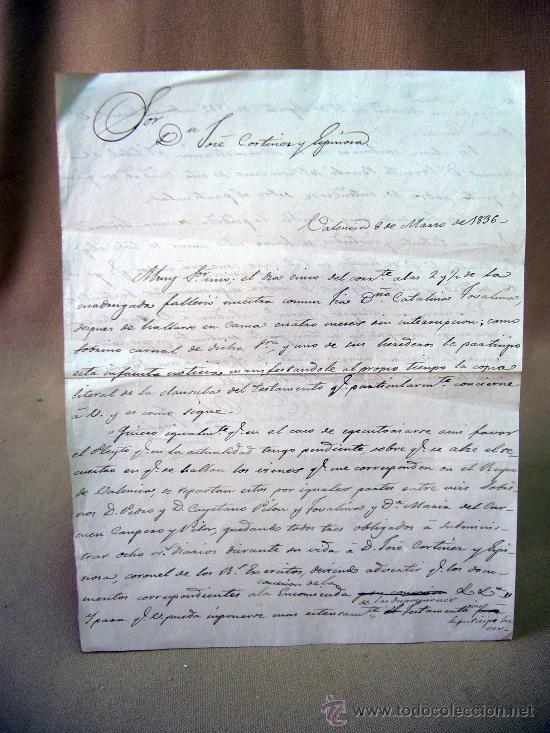 Sor
Dn. José Cortines y Espinosa
Valencia 8 de Marzo de 1836-
Muy Sr. mio: el dia cinco del corrte. a las 2 y ½ de la
madrugada falleció nuestra comun Tia Dña Catalina Tosalva,
despues de hallarse en cama cuatro meses sin interrupcion; como
sobrino carnal de dicha Sra., y uno de sus herederos le participo
esta infausta noticia manifestandole al propio tiempo la copia
literal de la clausula del testamento q. particularmte. concierne
á V. y es como sigue-
"Quiero igualmte. q. en el caso de ejecutoriarse a mi favor
el Pleyto q. en la actualidad tengo pendiente sobre q. se alze el se-
cuestro en q. se hallan los vienes q. me corresponden en el Reyno
de Valencia, se repartan estos por iguales partes entre mis sobri-
nos D. Pedro y D. Cayetano Pilon y Tosalva y Da. Maria del Car-
men Campero y Pilon, quedando todos tres obligados á suminis-
trar ocho rs. diarios durante su vida á D. José Cortines y Espi-
nosa, coronel de los Rs. Exercitos, deviendo advertir q. los docu-
mentos correspondientes a la Encomienda
concion de la
de las disposiciones
Y para q. V. pueda imponerse mas estensamte. testamento
le participo